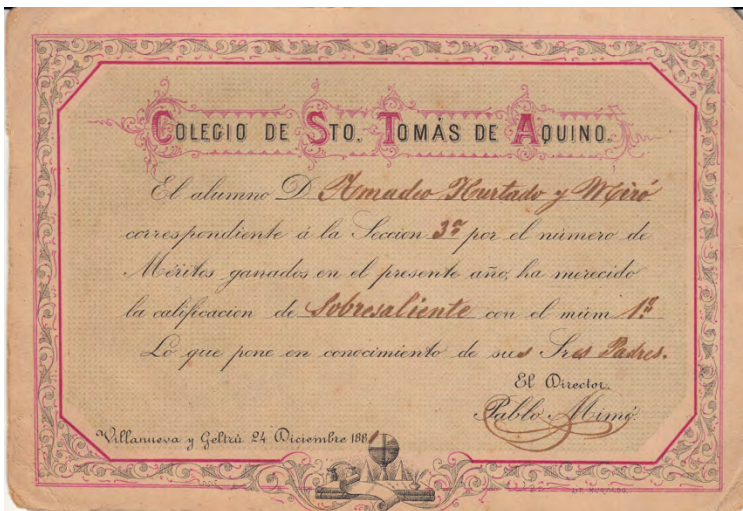 COLEGIO DE STO. TOMÁS DE AQUINO.
El alumno D. Amadeo Hurtado y Miró
correspondiente á la Seccion 3ª por el número de
Méritos ganados en el presente año, ha merecido
la calificacion de Sobresaliente con el núm 1º
Lo que pone en conocimiento de sus Sres Padres.
El Director,
Pablo Mimó
Villanueva y Geltrú 24 Diciembre 1881